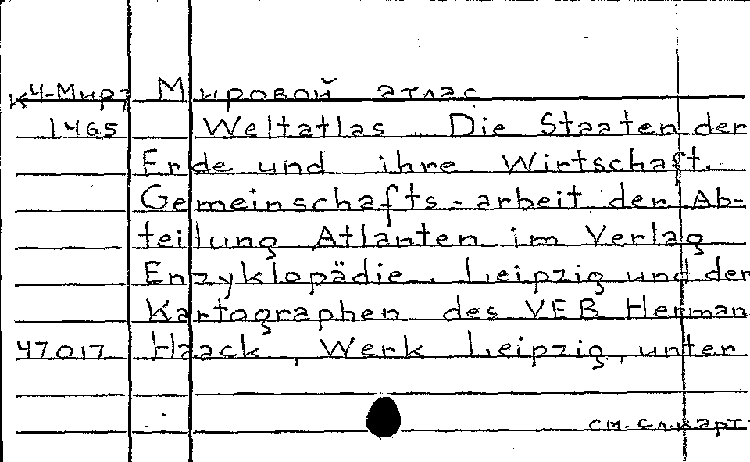 К4-Мир7 Мировой атлас
1465 Weltatlas Die Staaten der
Erde und ihre Wirtschaft.
Gemeinschafts-arbeit der Ab-
teilung Atlanten im Verlag
Enzyklopädie, Leipzig und der
Kartographen des VEB Herman
47017 Haack, Werk Leipzig, unter
см.сл.карт